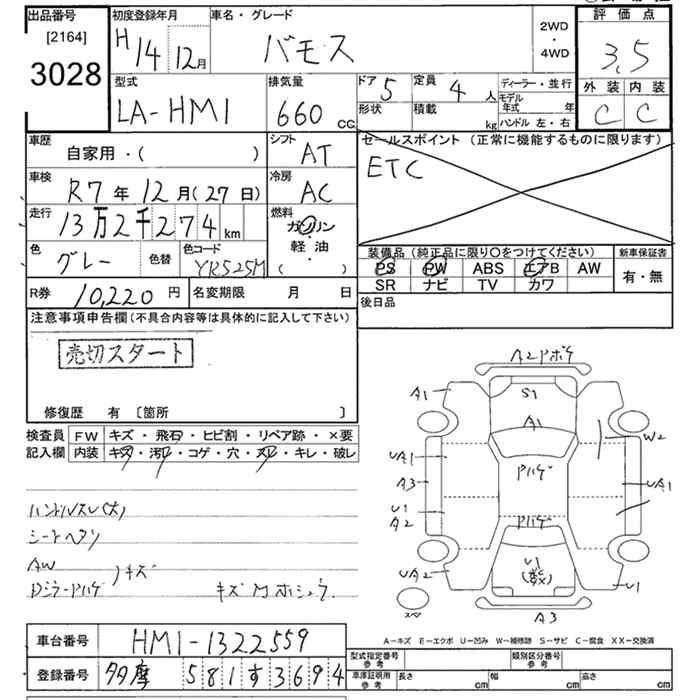 出品番号
[2164]
3028
初度登録年月 車名・グレード
H 14 12月 バモス
2WD
・
4WD
評価点
3.5
外装 内装
C C
型式 排気量
LA-HM1 660 cc
ドア 5 定員 4 人
形状 積載 kg
ディーラー・並行
モデル年式 年
ハンドル 左・右
車歴 シフト
自家用・( ) AT
車検 冷房
R7年12月(27日) AC
走行 燃料
13万2千274km ガソリン・軽油・( )
色 色替 色コード
グレー YR525M
セールスポイント (正常に機能するものに限ります)
ETC
装備品 (純正品に限り○をつけてください) 新車保証書
PS PW ABS エアB AW 有・無
SR ナビ TV カワ
R券 10,220円 名変期限 月 日
後日品
注意事項申告欄 (不具合内容等は具体的に記入して下さい)
売切スタート
修復歴 有 〔箇所 〕
検査員 FW キズ・飛石・ヒビ割・リペア跡・×要
記入欄 内装 キズ・汚レ・コゲ・穴・スレ・キレ・破レ
ハンドルスレ(大)
シートヘタリ
AW キズ
Dミラーハゲ キズ M ホシュウ
A2 アボゲ
A1 S1
A1 W2
UA1 Pハゲ
A3 UA1
U1
A2 Pハゲ
U1
UA2 U1
A3
A-キズ E-エクボ U-凹み W-補修跡 S-サビ C-腐食 XX-交換済
車台番号 HM1-1322559
登録番号 多摩 581す3694
型式指定番号 参考 類別区分番号 参考
車庫証明用 参考 長さ cm 幅 cm 高さ cm